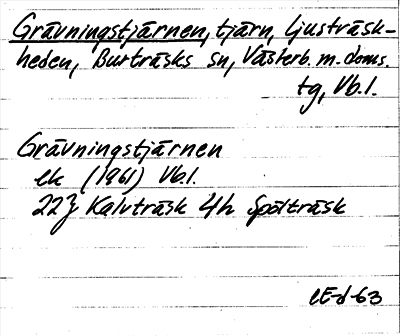 Grävningstjärnen, tjärn, Ljusträsk-
heden, Burträsks sn, Västerb. m. doms.
tg, Vb.l.
Grävningstjärnen
ek (1961) Vb.l.
22J Kalvträsk 4h Spölträsk